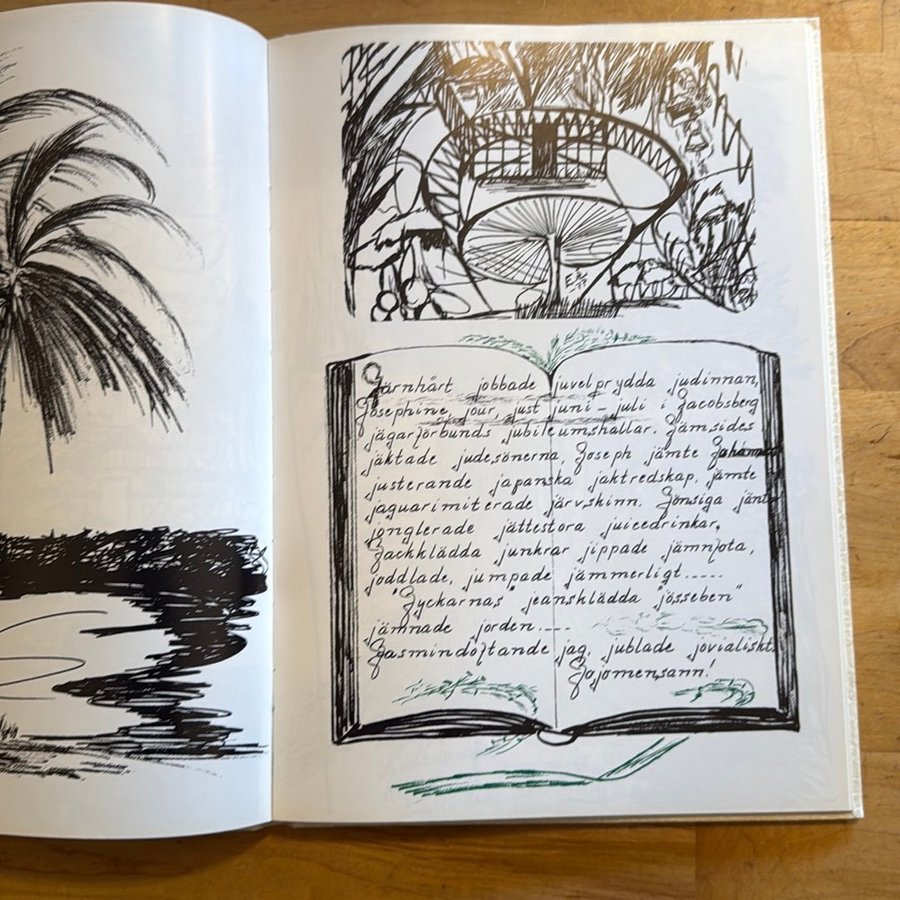 Järnhårt jobbade juvelprydda judinnan,
Josephine, jour, just juni - juli i Jacobsberg
jägarförbunds jubileumshallar. Jämsides
jäktade judesönerna, Joseph jämte Johannes
justerande japanska jaktredskap, jämte
jaguarimiterade järvskinn. Jönsiga jänt
jonglerade jättestora juicedrinkar,
Jackklädda junkrar jippade jämnfota,
joddlade, jumpade jämmerligt.....
"Jyckarnas" jeansklädda "jösseben"
jämnade jorden....
Jasmindoftande jag, jublade jovialiskt,
Jojomensann!